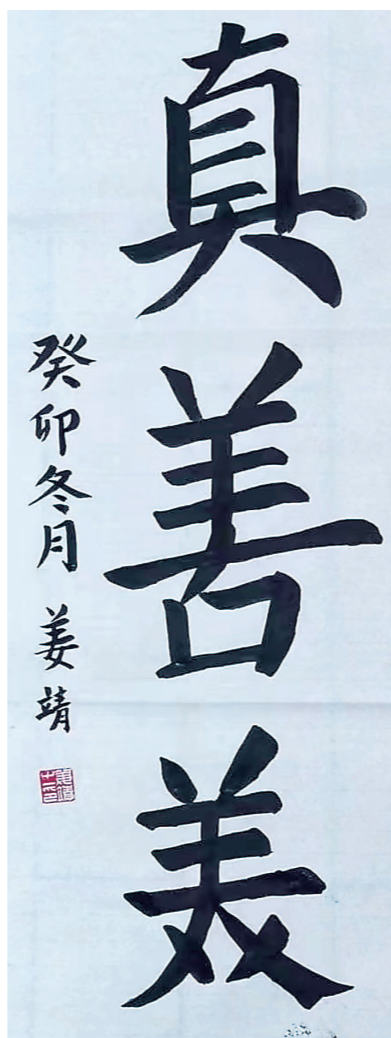 真善美
癸卯冬月 姜靖